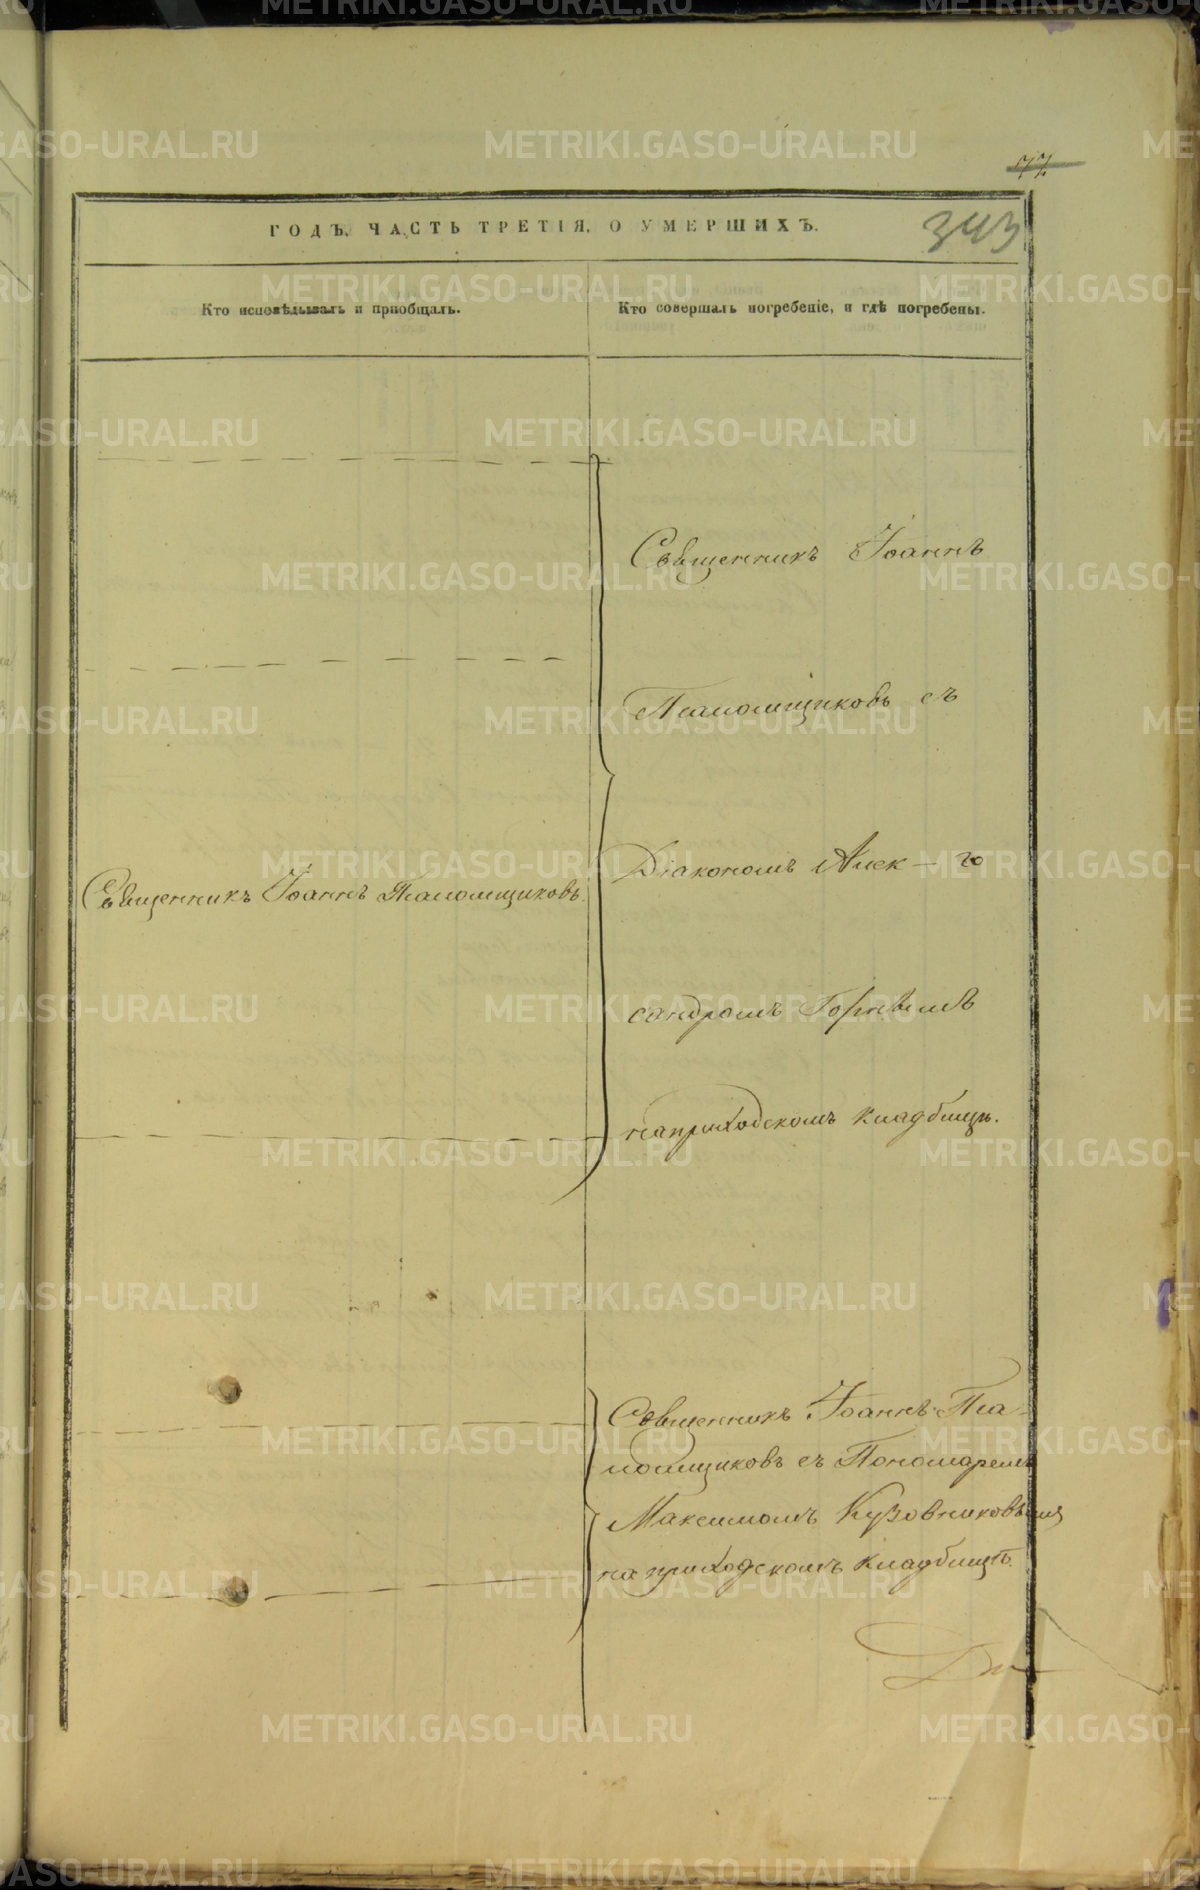 77
343
ГОДЪ. ЧАСТЬ ТРЕТІЯ, О УМЕРШИХЪ.
Кто исповѣдывалъ и пріобщалъ.
Кто совершалъ погребеніе, и гдѣ погребены.
Священникъ Іоаннъ
Пало­мщиковъ съ
Діакономъ Алек-
Священникъ Іоаннъ Паломщиковъ.
сандромъ
на приходскомъ кладбищѣ.
Священникъ Іоаннъ Па-
ломщиковъ съ Пономаремъ
Максимомъ Кузовниковымъ
на приходскомъ кладбищѣ.
METRIKI.GASO-URAL.RU